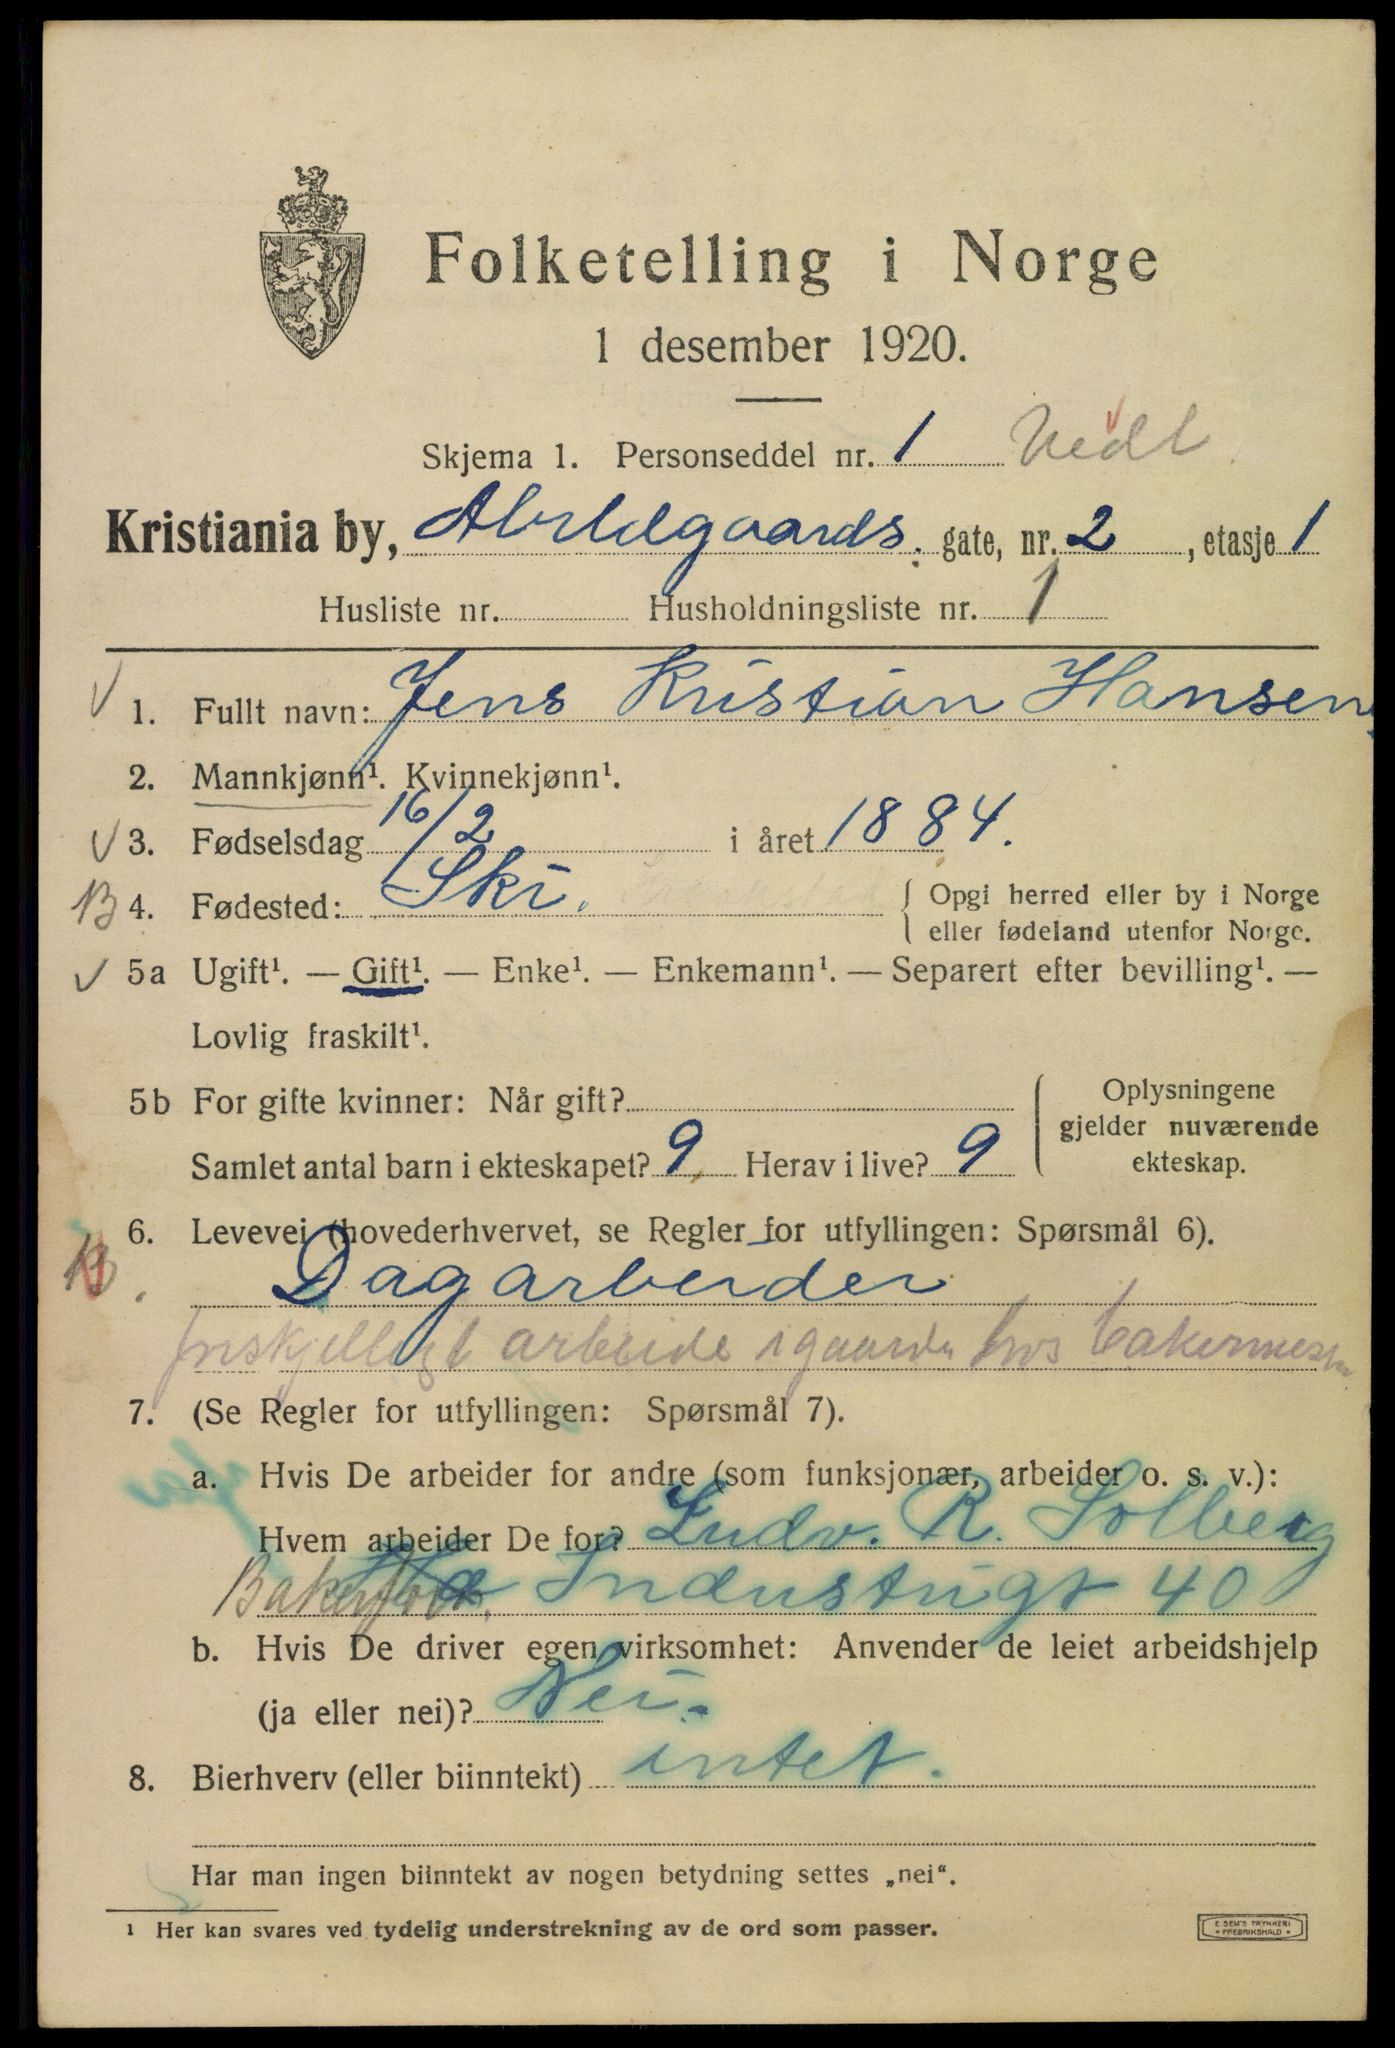 Folketelling i Norge
1 desember 1920.
Skjema 1. Personseddel nr. 1 Vedl
Kristiania by, Abildgaards. gate, nr. 2, etasje 1
Husliste nr. Husholdningsliste nr. 1
1. Fullt navn: Jens Kristian Hansen
2. Mannkjønn¹. Kvinnekjønn¹.
3. Fødselsdag 16/2 i året 1884.
B 4. Fødested: Ski. { Opgi herred eller by i Norge
eller fødeland utenfor Norge.
5a Ugift¹. — Gift¹. — Enke¹. — Enkemann¹. — Separert efter bevilling¹. —
Lovlig fraskilt¹.
5b For gifte kvinner: Når gift? { Oplysningene
gjelder nuværende
Samlet antal barn i ekteskapet? 9 Herav i live? 9 ekteskap.
6. Levevei (hovederhvervet, se Regler for utfyllingen: Spørsmål 6).
Dagarbeider
forskjelligt arbeide i gaarden hos bakermester
7. (Se Regler for utfyllingen: Spørsmål 7).
a. Hvis De arbeider for andre (som funksjonær, arbeider o. s. v.):
Hvem arbeider De for? Ludv. R. Solberg
Industrigt 40
b. Hvis De driver egen virksomhet: Anvender de leiet arbeidshjelp
(ja eller nei)? Nei.
8. Bierhverv (eller biinntekt) intet.
Har man ingen biinntekt av nogen betydning settes „nei“.
1 Her kan svares ved tydelig understrekning av de ord som passer.
E. SEM'S TRYKKERI
* FREDRIKSHALD *